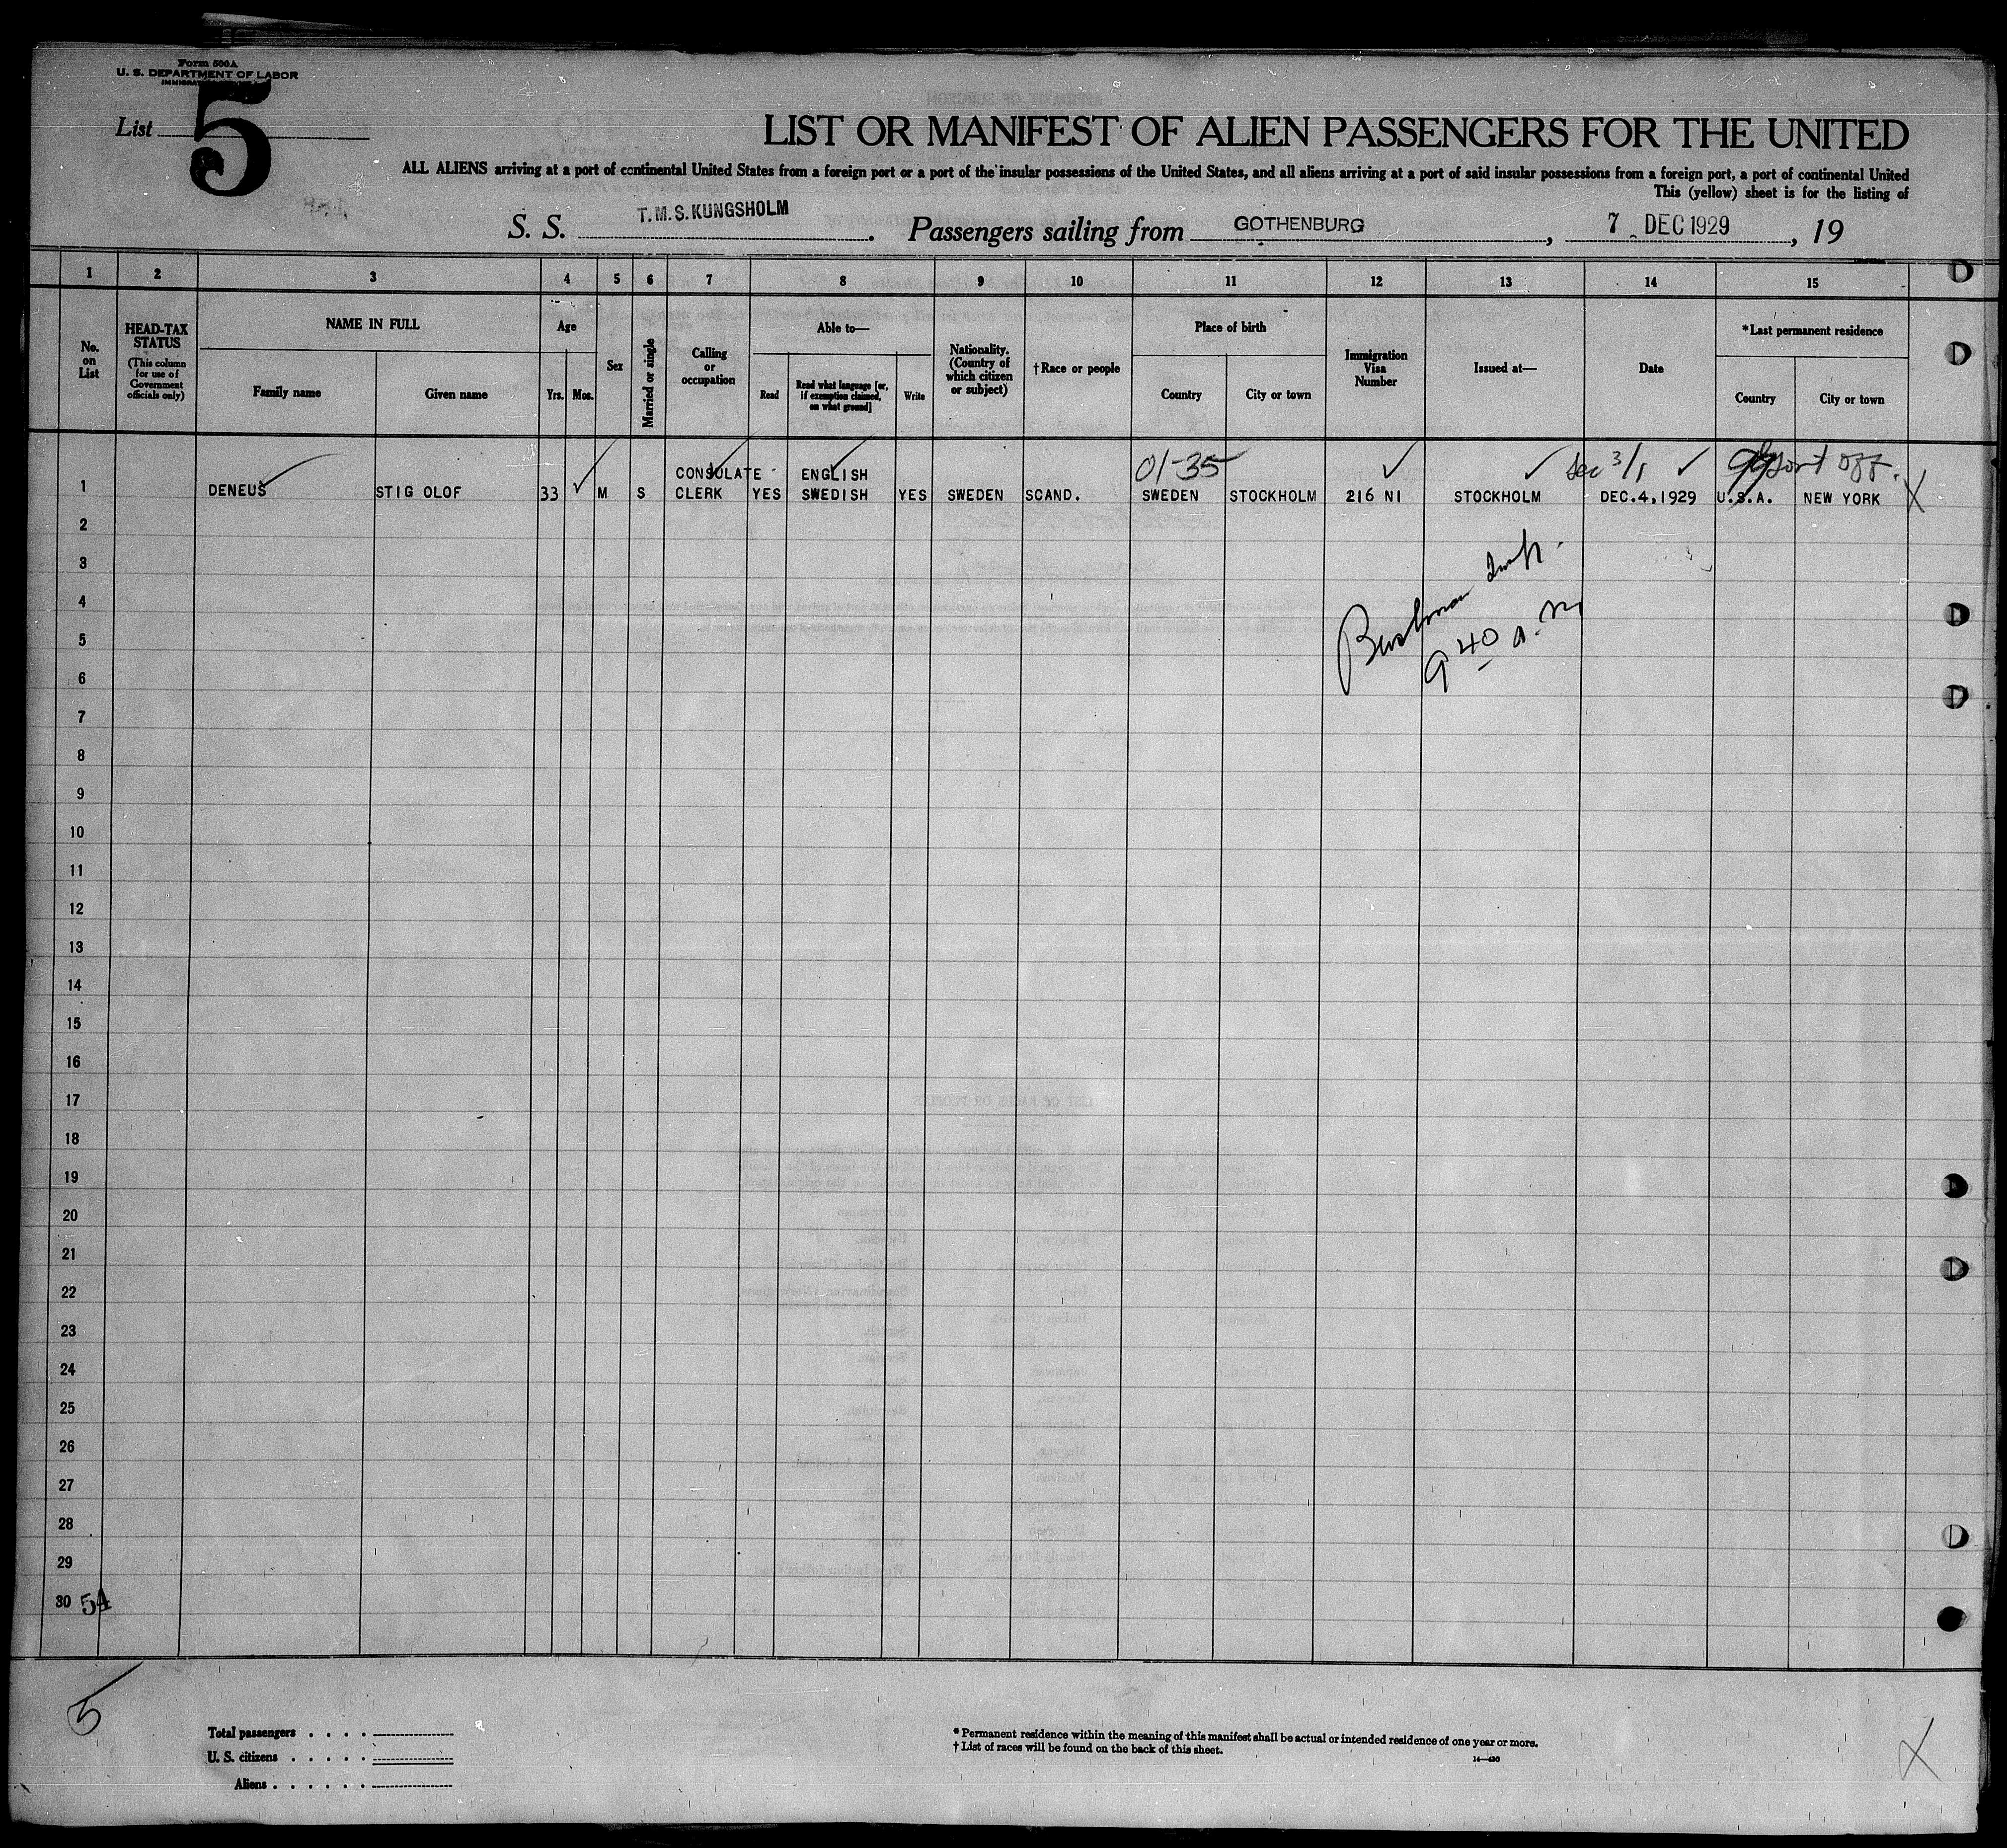 Form 500A
U. S. DEPARTMENT OF LABOR
List 5
LIST OR MANIFEST OF ALIEN PASSENGERS FOR THE UNITED
ALL ALIENS arriving at a port of continental United States from a foreign port or a port of the insular possessions of the United States, and all aliens arriving at a port of said insular possessions from a foreign port, a port of continental United
This (yellow) sheet is for the listing of
S. S. T.M.S. KUNGSHOLM. Passengers sailing from GOTHENBURG, 7 DEC 1929, 19
1 2 3 4 5 6 7 8 9 10 11 12 13 14 15
No. on List
HEAD-TAX STATUS
(This column for use of Government officials only)
NAME IN FULL
Family name
Given name
Age
Yrs. Mos.
Sex
Married or single
Calling or occupation
Able to—
Read
Read what language [or, if exemption claimed, on what ground]
Write
Nationality. (Country of which citizen or subject)
†Race or people
Place of birth
Country
City or town
Immigration Visa Number
Issued at—
Date
*Last permanent residence
Country
City or town
01-35
Sec 3/1
off.
CONSULATE ENGLISH
1 DENEUS STIG OLOF 33 M S CLERK YES SWEDISH YES SWEDEN SCAND. SWEDEN STOCKHOLM 216 NI STOCKHOLM DEC.4,1929 U.S.A. NEW YORK X
2
3
4
5
9 40 a.m
6
7
8
9
10
11
12
13
14
15
16
17
18
19
20
21
22
23
24
25
26
27
28
29
30 54
5
Total passengers
U. S. citizens
Aliens
* Permanent residence within the meaning of this manifest shall be actual or intended residence of one year or more.
† List of races will be found on the back of this sheet.
X